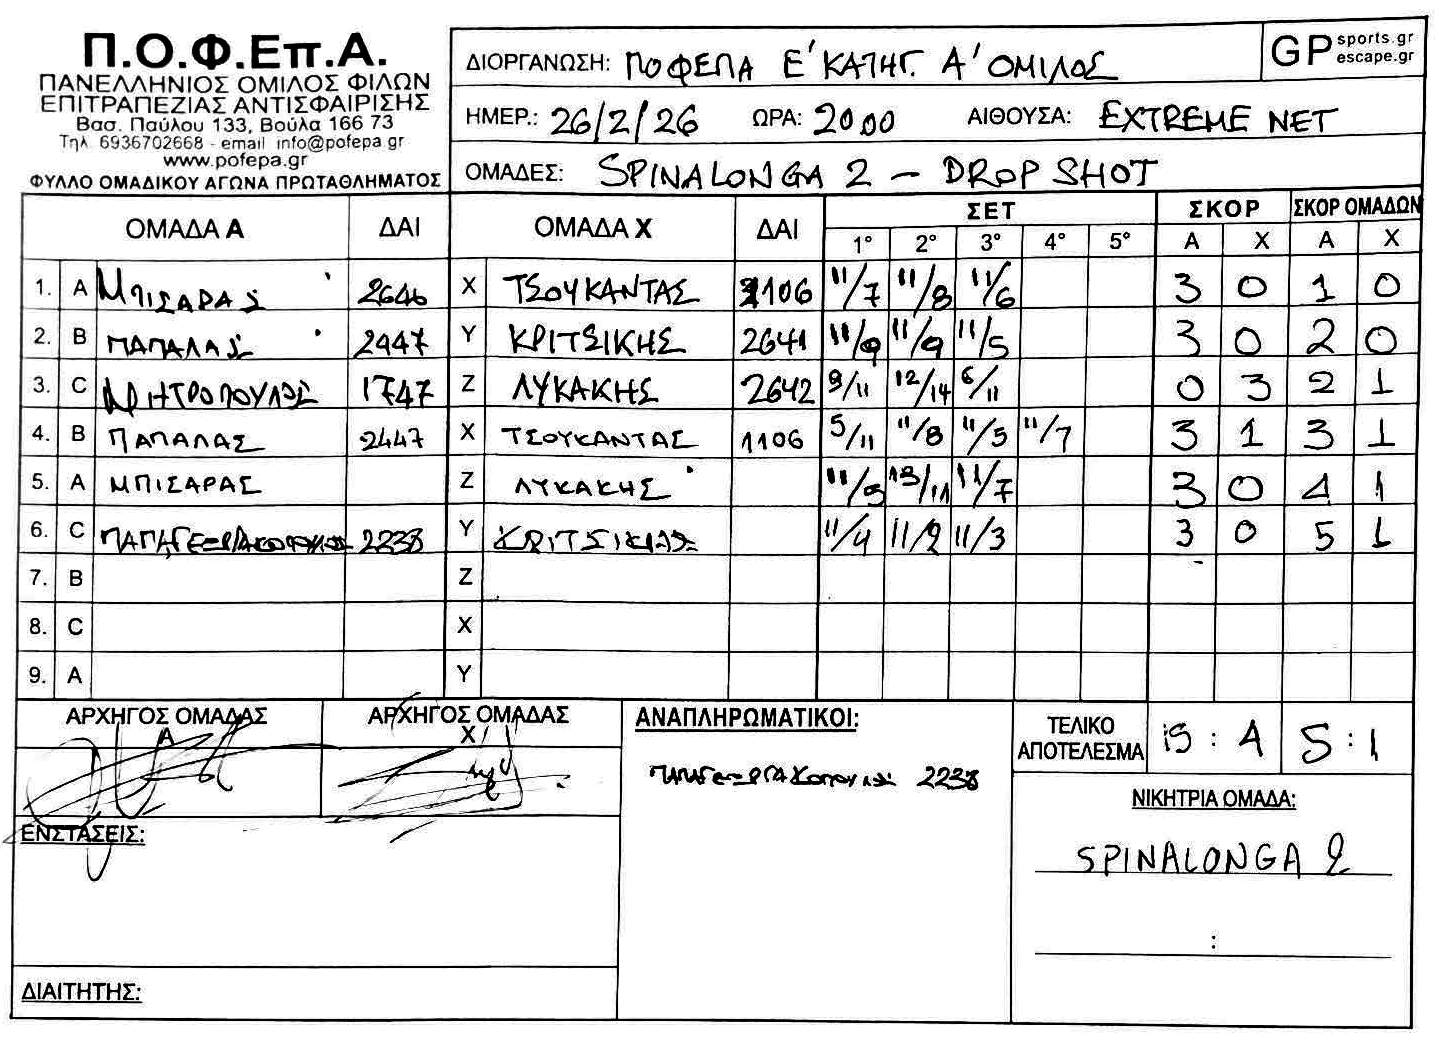 Π.Ο.Φ.Επ.Α.
ΠΑΝΕΛΛΗΝΙΟΣ ΟΜΙΛΟΣ ΦΙΛΩΝ
ΕΠΙΤΡΑΠΕΖΙΑΣ ΑΝΤΙΣΦΑΙΡΙΣΗΣ
Βασ. Παύλου 133, Βούλα 166 73
Τηλ. 6936702668 - email info@pofepa.gr
www.pofepa.gr
ΦΥΛΛΟ ΟΜΑΔΙΚΟΥ ΑΓΩΝΑ ΠΡΩΤΑΘΛΗΜΑΤΟΣ
ΔΙΟΡΓΑΝΩΣΗ: ΠΟΦΕΠΑ Ε' ΚΑΤΗΓ. Α' ΟΜΙΛΟΣ
GP sports.gr
escape.gr
ΗΜΕΡ.: 26/2/26 ΩΡΑ: 20.00 ΑΙΘΟΥΣΑ: EXTREME NET
ΟΜΑΔΕΣ: SPINALONGA 2 - DROP SHOT
ΟΜΑΔΑ Α ΔΑΙ ΟΜΑΔΑ Χ ΔΑΙ ΣΕΤ ΣΚΟΡ ΣΚΟΡ ΟΜΑΔΩΝ
1° 2° 3° 4° 5° Α Χ Α Χ
1. A ΜΠΙΣΑΡΑΣ 2646 X ΤΣΟΥΚΑΝΤΑΣ 1106 11/7 11/8 11/6 3 0 1 0
2. B ΠΑΠΑΛΑΣ 2447 Y ΚΡΙΤΣΙΚΗΣ 2641 11/9 11/9 11/5 3 0 2 0
3. C ΜΗΤΡΟΠΟΥΛΟΣ 1747 Z ΛΥΚΑΚΗΣ 2642 9/11 12/14 6/11 0 3 2 1
4. B ΠΑΠΑΛΑΣ 2447 X ΤΣΟΥΚΑΝΤΑΣ 1106 5/11 11/8 11/5 11/7 3 1 3 1
5. A ΜΠΙΣΑΡΑΣ Z ΛΥΚΑΚΗΣ 11/9 13/11 11/7 3 0 4 1
6. C ΠΑΠΑΓΕΩΡΓΑΚΟΠΟΥΛΟΣ 2238 Y ΚΡΙΤΣΙΚΗΣ 11/4 11/2 11/3 3 0 5 1
7. B Z
8. C X
9. A Y
ΑΡΧΗΓΟΣ ΟΜΑΔΑΣ
Α
ΑΡΧΗΓΟΣ ΟΜΑΔΑΣ
Χ
ΑΝΑΠΛΗΡΩΜΑΤΙΚΟΙ:
ΠΑΠΑΓΕΩΡΓΑΚΟΠΟΥΛΟΣ 2238
ΤΕΛΙΚΟ
ΑΠΟΤΕΛΕΣΜΑ
15 : 4 5 : 1
ΝΙΚΗΤΡΙΑ ΟΜΑΔΑ:
SPINALONGA 2
:
ΕΝΣΤΑΣΕΙΣ:
ΔΙΑΙΤΗΤΗΣ: